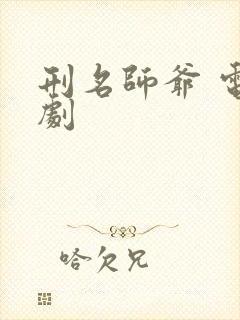 刑名師爺 電
劇
哈欠兄